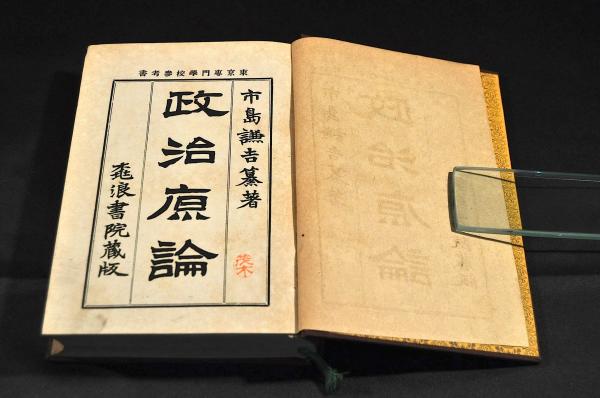 東京專門學校參考書
市島謙吉纂著
政治原論
浪書院蔵版
茂木